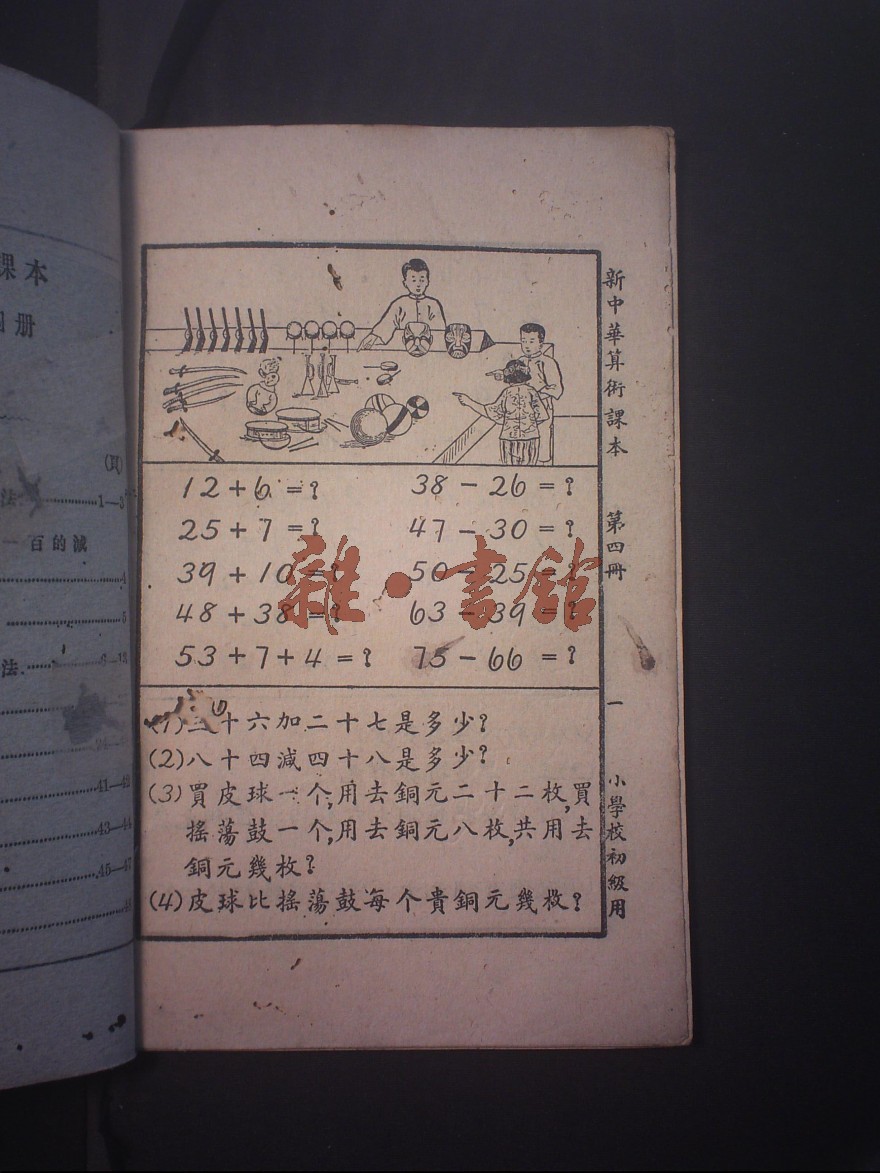 12+6=?
38-26=?
25+7=?
47-30=?
39+10=?
50-25=?
48+38=?
63-39=?
53+7+4=?
75-66=?
(1)十六加二十七是多少?
(2)八十四減四十八是多少?
(3)買皮球一个,用去銅元二十二枚,買
搖蕩鼓一个,用去銅元八枚,共用去
銅元幾枚?
(4)皮球比搖蕩鼓每个貴銅元幾枚?
新中華算術課本 第四冊 一 小學校初級用
雜·書館
課本
册
(頁)
法 1—3
一百的減
4
5
法
41—42
43—44
45—47